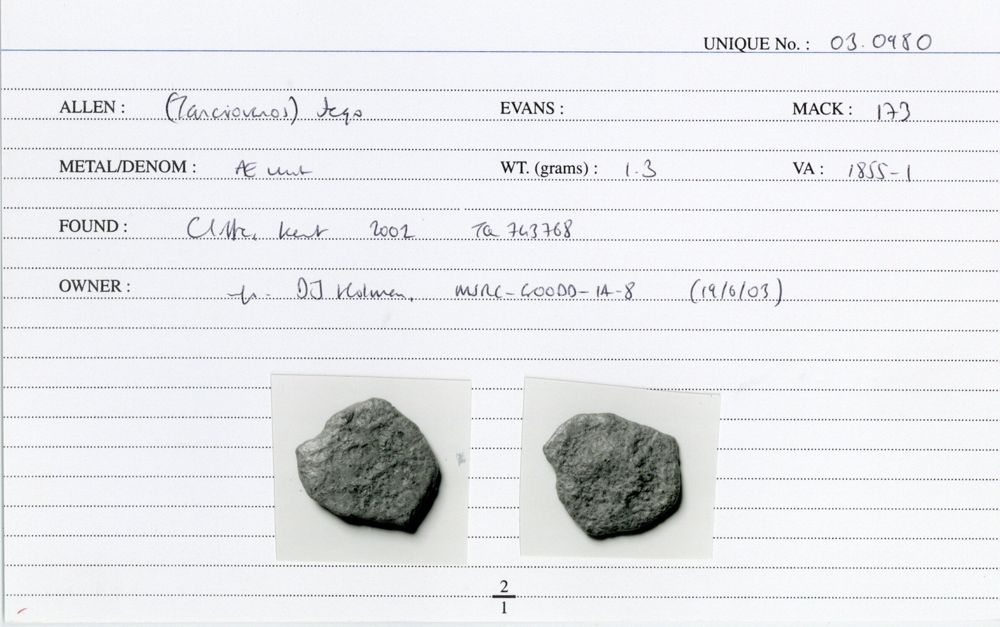 UNIQUE No. : 03.0980
ALLEN : (Tasciovanos) Sego EVANS : MACK : 173
METAL/DENOM : Æ unit WT. (grams) : 1.3 VA : 1855-1
FOUND : Cliffe, Kent 2002 TQ 743768
OWNER : DJ Holman, (19/6/03)
2
1